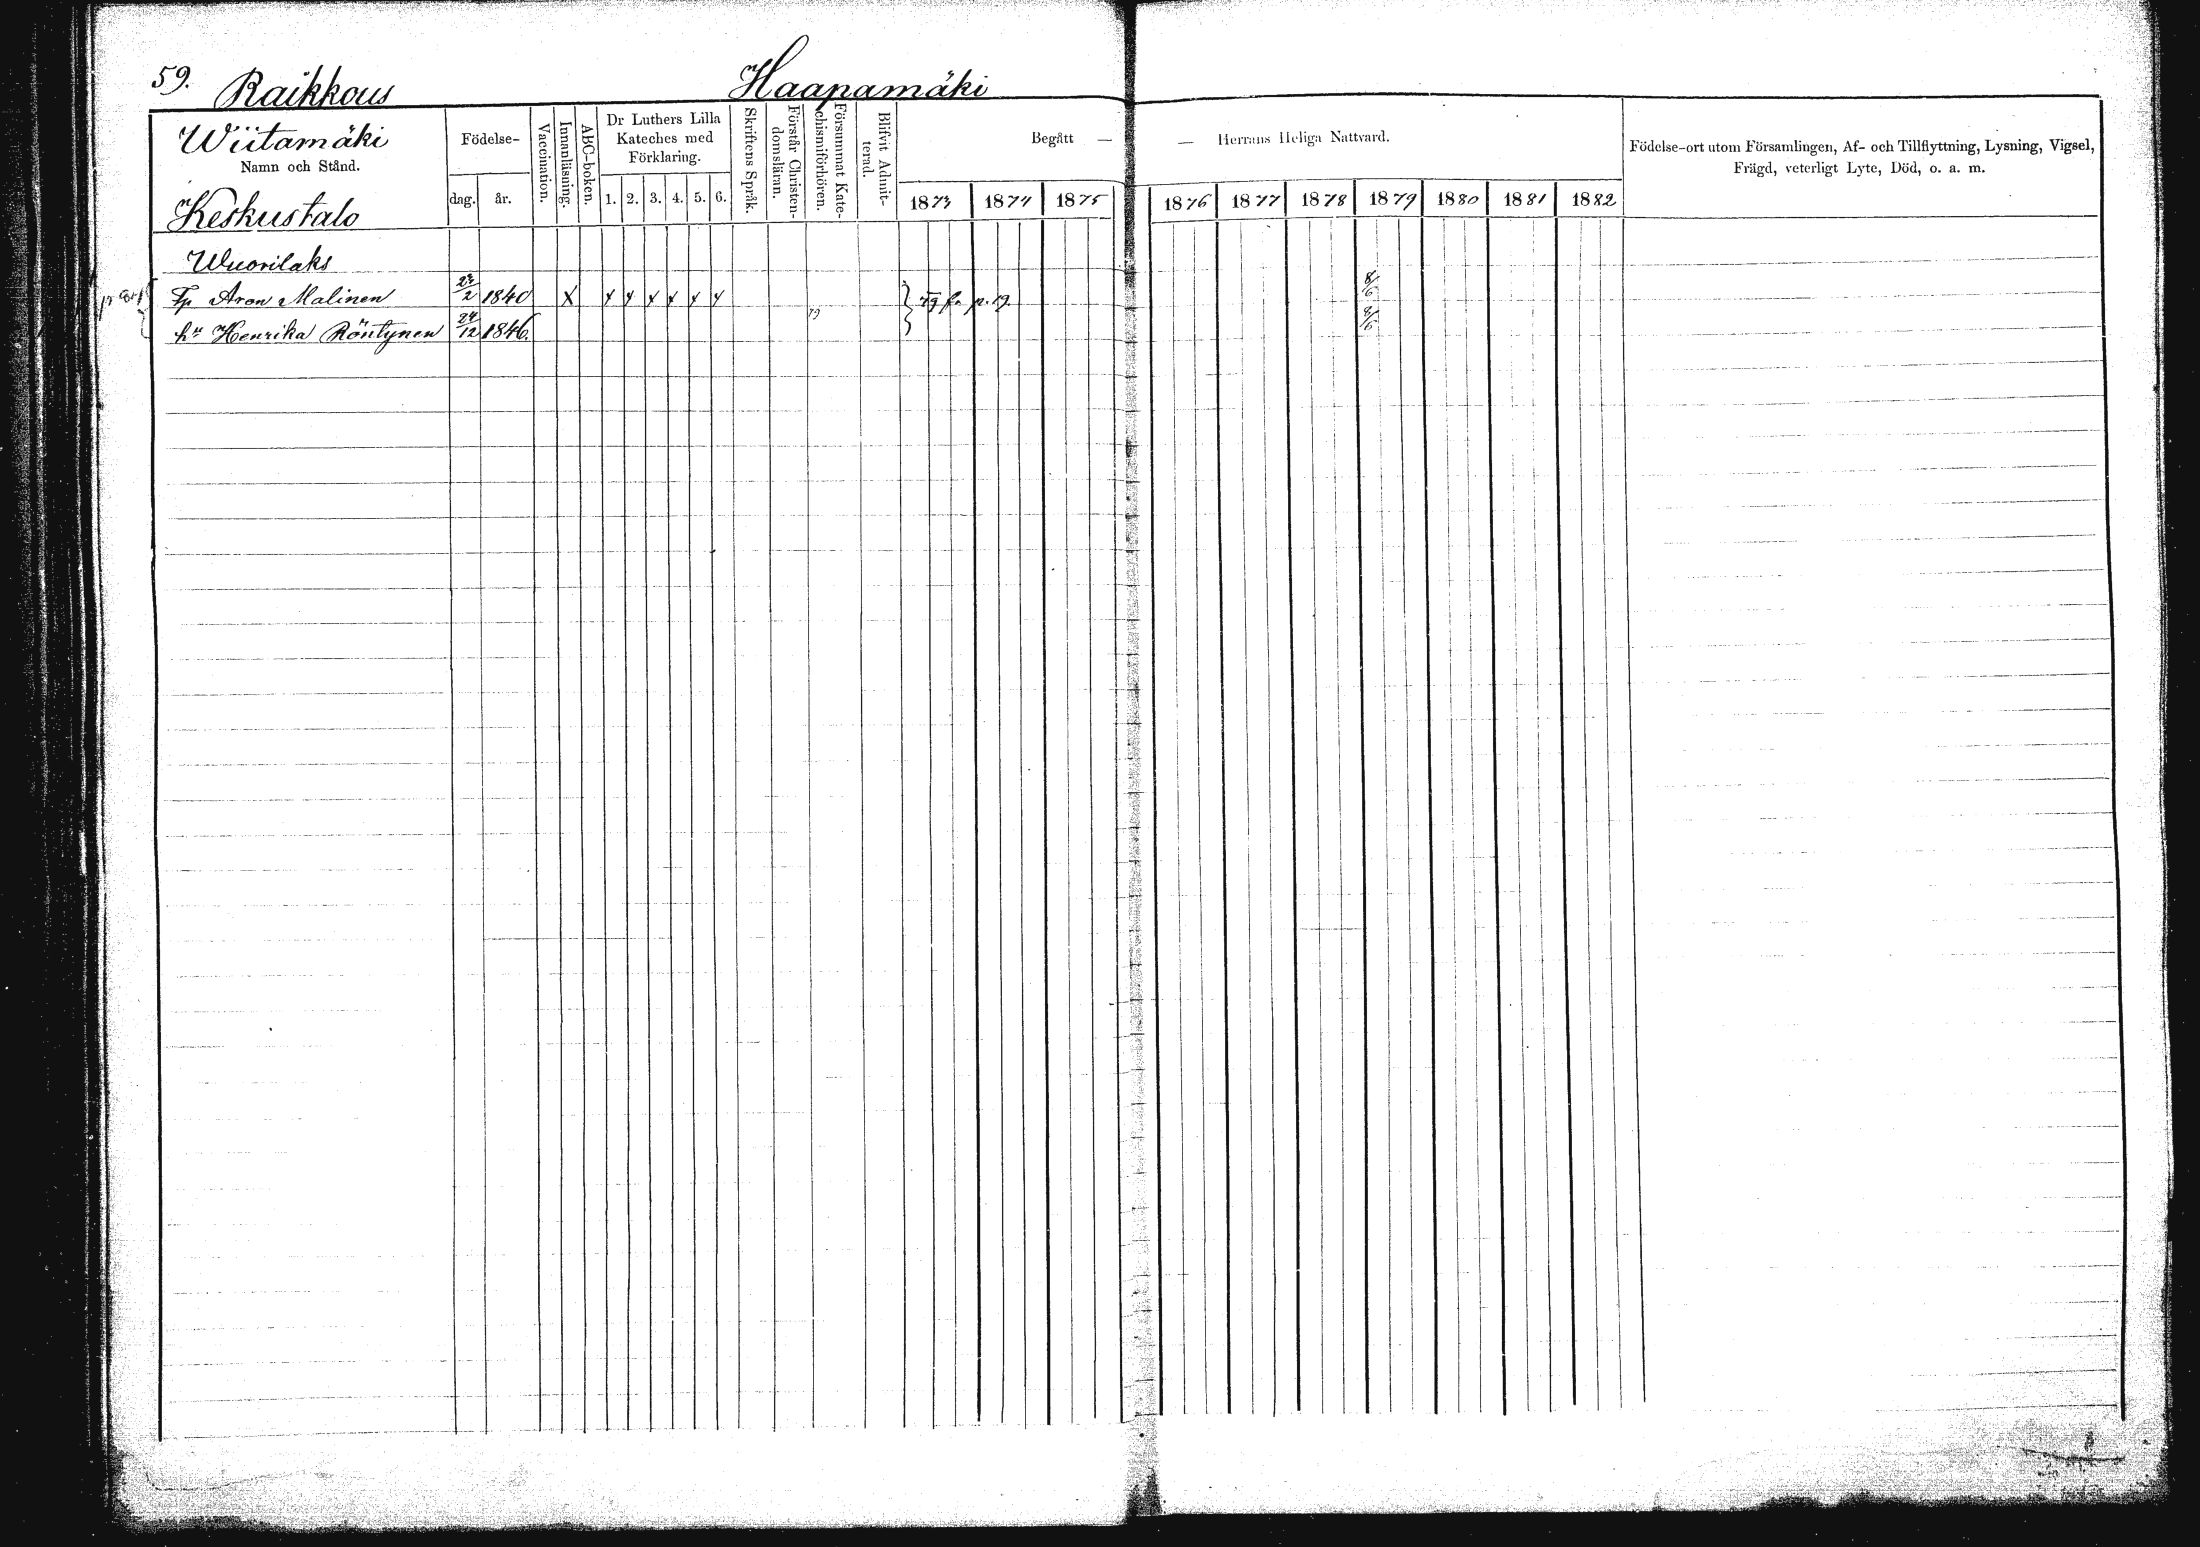 59. Raikkous Haapamäki
Wiitamäki
Namn och Stånd.
Keskustalo
Födelse-
dag. år.
Vaccination.
Innanläsning.
ABC-boken.
Dr Luthers Lilla
Kateches med
Förklaring.
1. 2. 3. 4. 5. 6.
Skriftens Språk.
Förstår Christen-
domsläran.
Försummat Kate-
chismiförhören.
Blifvit Admit-
terad.
Begått —
— Herrans Heliga Nattvard.
1873 1874 1875 1876 1877 1878 1879 1880 1881 1882
Födelse-ort utom Församlingen, Af- och Tillflyttning, Lysning, Vigsel,
Frägd, veterligt Lyte, Död, o. a. m.
Wuorilaks
Tp Aron Malinen 23/2 1840 X x x x x x x 79 fr. p. 19. 8/6
hu Henrika Röntynen 24/12 1846. 79 8/6